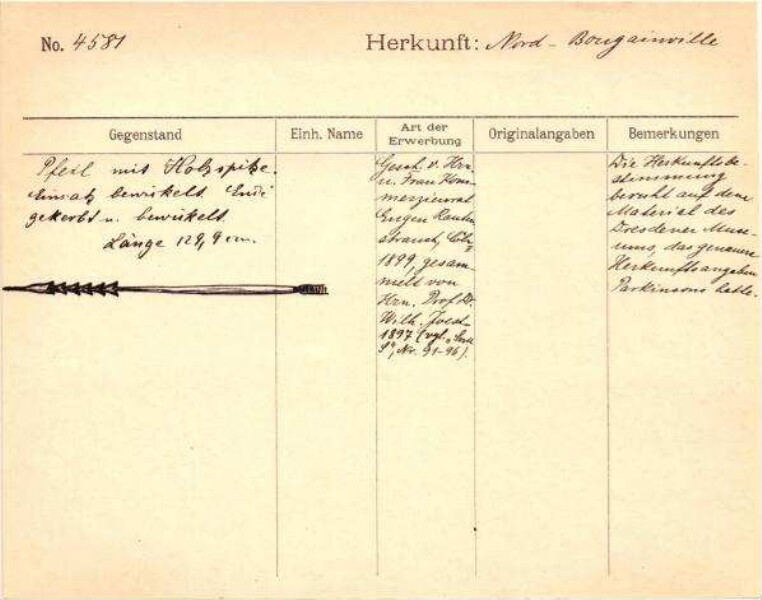 No. 4581
Herkunft: Nord-Bougainville
Gegenstand
Einh. Name
Art der Erwerbung
Originalangaben
Bemerkungen
Pfeil mit Holzspitze.
Einsatz bewickelt. Ende
gekerbt u. bewickelt.
Länge 129,9 cm.
Gesch. v. Hrn.
u. Frau Kom-
merzienrat
Eugen Rauten
strauch, Cöln
1899, gesam-
melt von
Hrn. Prof. Dr.
Wilh. Joest
1897 (vgl.
S", Nr. 91-96).
Die Herkunftsbe-
stimmung
beruht auf dem
Material des
Dresdener Muse-
ums, das genauere
Herkunftsangaben
Parkinsons hatte.